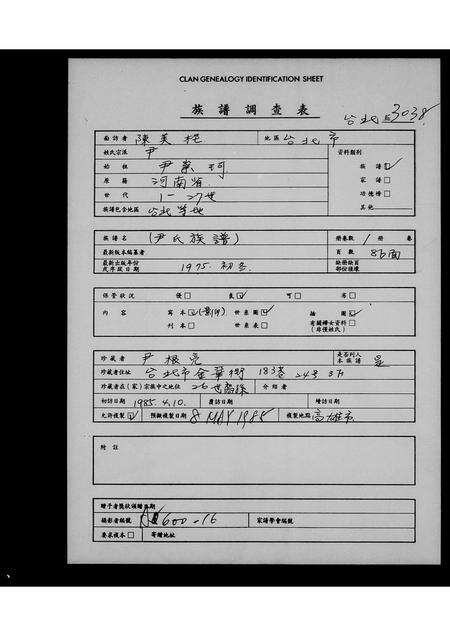 CLAN GENEALOGY IDENTIFICATION SHEET
族譜調查表
台北 3038
面訪者 陳美 地區 台北市
姓氏宗派 尹 資料類別
始祖 尹 珂 族譜 ☑
原籍 河南省 家譜 □
世代 1-27世 功德榜 □
族譜包含地區 台北等地 其他
族譜名 (尹氏族譜) 冊卷數 / 冊卷
最新版本編纂者 頁數 86面
最新出版年份或序跋日期 1975. 缺冊缺頁部份種壞
保管狀況 優 □ 良 ☑ 可 □ 劣 □
內容 寫本 ☑ (影印) 世系圖 ☑ 插圖 ☑
刊本 □ 世系表 □ 有關婦女資料 □ (非僅姓氏)
珍藏者 尹根亮 是否列入本族譜 是
珍藏者住址 台北市金華街183巷24号3F
珍藏者在(家)宗族中之地位 26世裔孫 介紹者
初訪日期 1985.4.10. 覆訪日期 增訪日期
允許複製 ☑ 預擬複製日期 8 MAY 1985 複製地點 高雄市
附註
贈予者獎狀頒贈日期
攝影者編號 600-16 家譜學會編號
要求複本 □ 寄贈地址